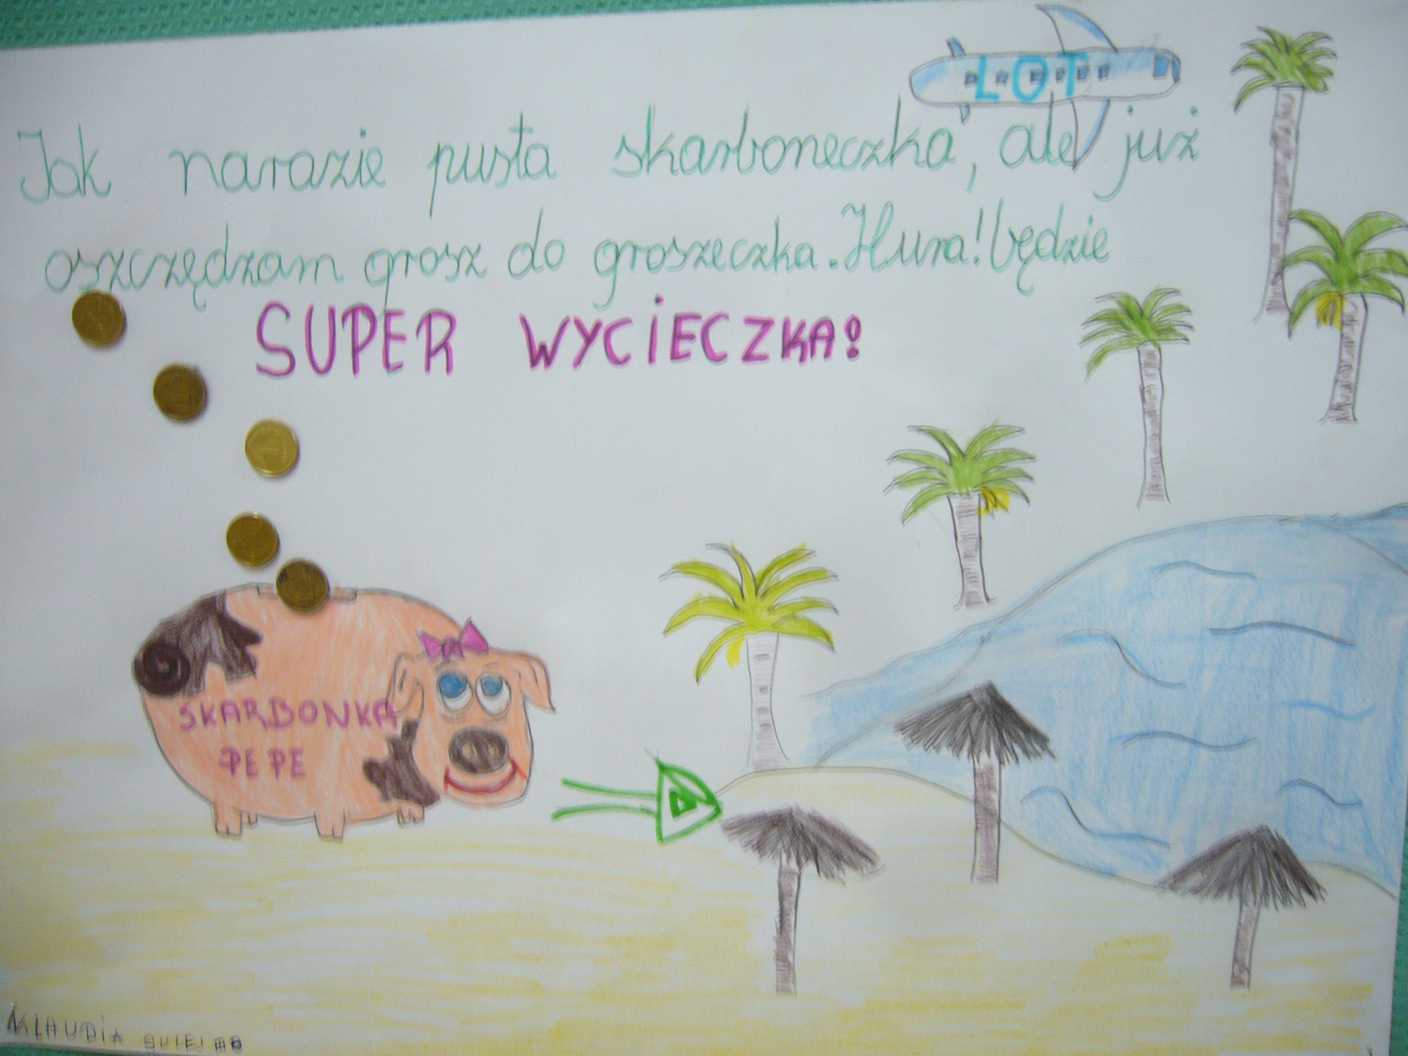 LOT
Jak narazie pusta skarboneczka, ale już
oszczędzam grosz do groszeczka. Hura! będzie
SUPER WYCIECZKA!
SKARBONKA
PEPE
KLAUDIA